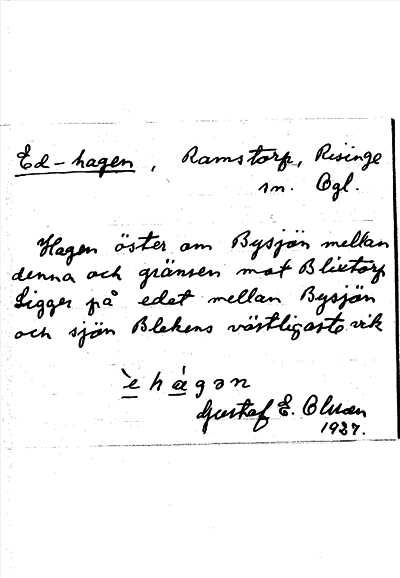 Ed-hagen, Ramstorp, Risinge
sn. Ögl.
Hagen öster om Bysjön mellan
denna och gränsen mot Blixtorp
Ligger på edet mellan Bysjön
och sjön Blekens västligaste vik
è h á g ə n
Gustaf E. Olsson
1927.